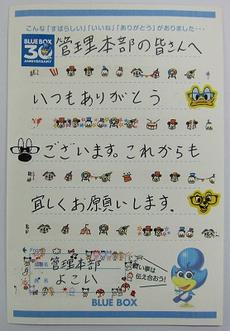 こんな「すばらしい」「いいね」「ありがとう」がありました・・・
BLUE BOX
30
ANNIVERSARY
管理本部の皆さんへ
いつもありがとう
ございます。これからも
宜しくお願いします。
From
管理本部
よこい
良い事は
伝え合おう!
BLUE BOX